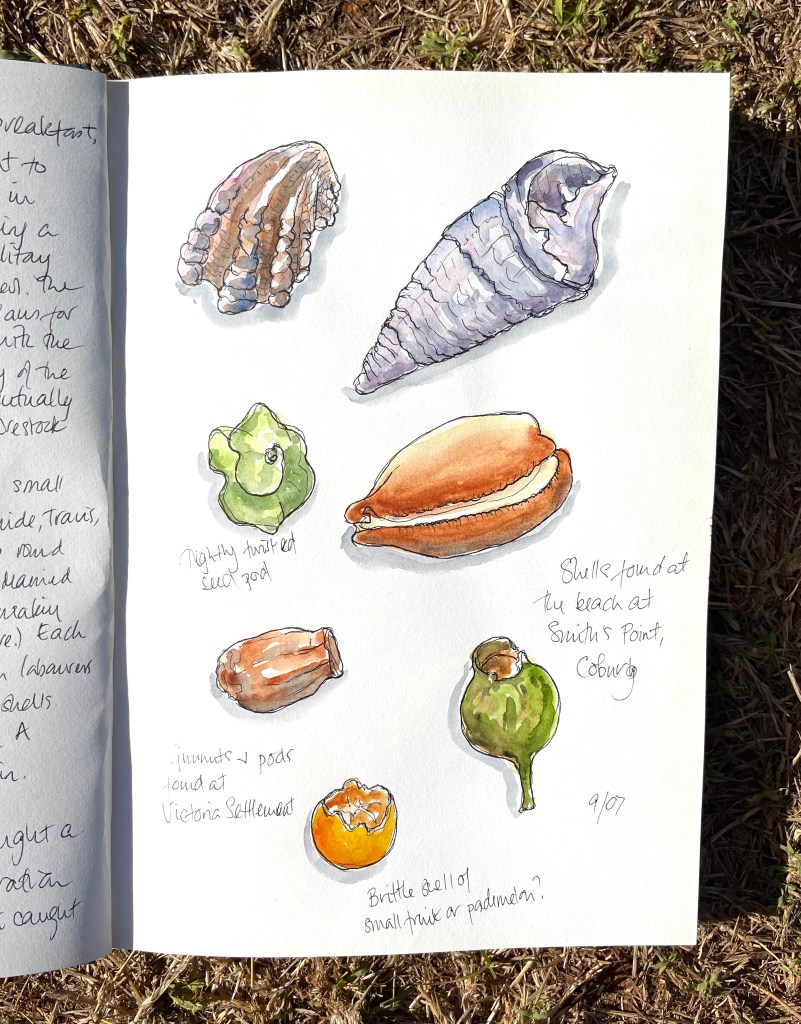 breakfast,
t to
in
a
The
for
with the
y of the
livestock
small
Travis,
round
Each
labourers
shells
A
in.
ught a
ration
t caught
Tightly twisted
seed pod
Shells found at
the beach at
Smith's Point,
Coburg
Gumnuts & pods
found at
Victoria Settlement
9/07
Brittle shell of
small fruit or pademelon?